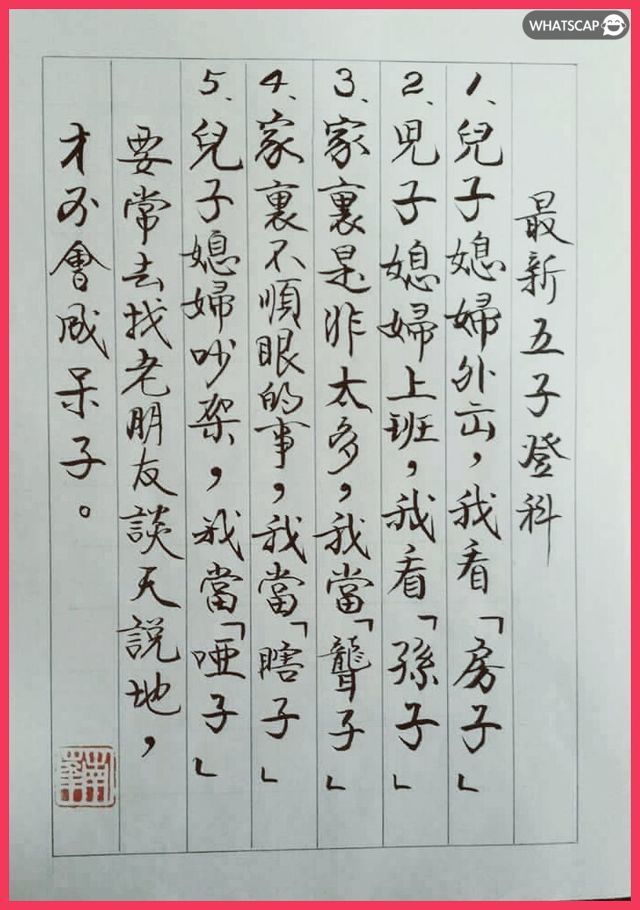 WHATSCAP
最新五子登科
1、兒子媳婦外出,我看「房子」
2、兒子媳婦上班,我看「孫子」
3、家裏是非太多,我當「聾子」
4、家裏不順眼的事,我當「瞎子」
5、兒子媳婦吵架,我當「啞子」
要常去找老朋友談天說地,
才不會成呆子。